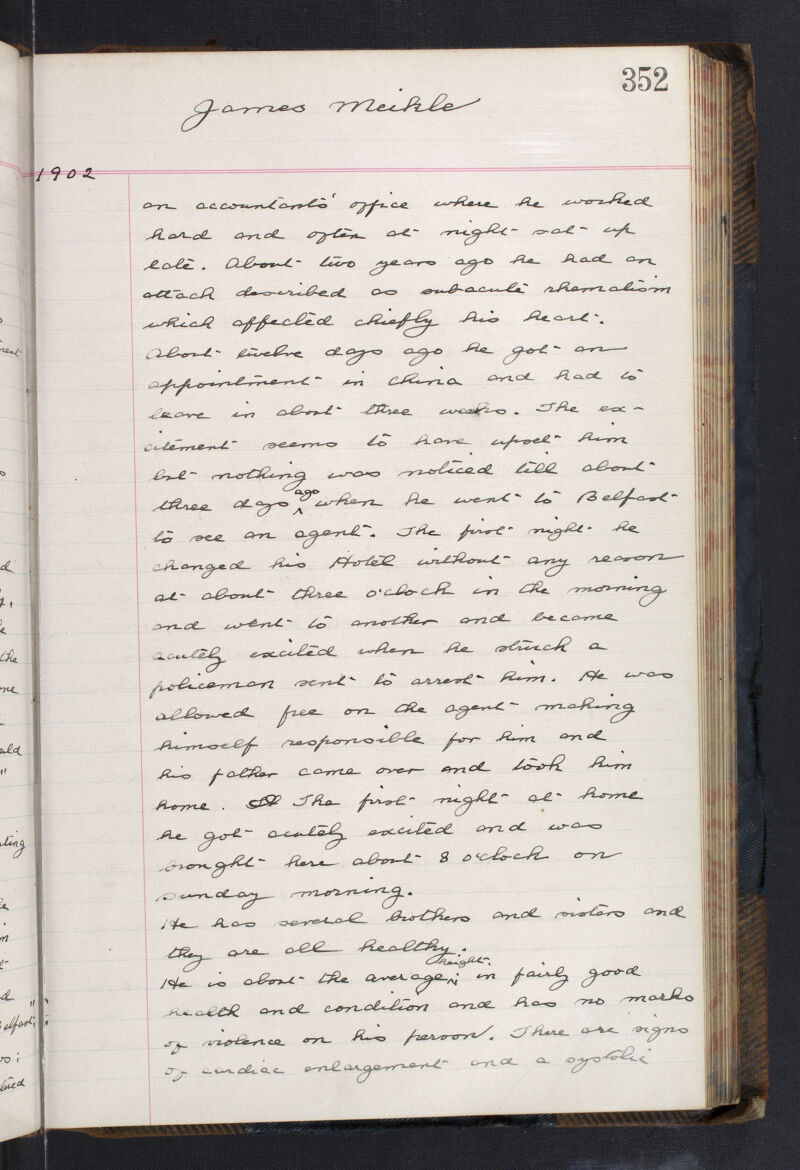 352
James Meikle
1902
an accountants' office where he worked
hard and often at night sat up
late. About two years ago he had an
attack described as subacute rhematism
which affected chiefly his heart.
About twelve days ago he got an
appointment in China and had to
leave in about three weeks. The ex-
citement seems to have upset him
but nothing was noticed till about
three days ago when he went to Belfast
to see an agent. The first night he
changed his Hotel without any reason
at about three o'clock in the morning
and went to another and became
acutely excited when he struck a
policeman sent to arrest him. He was
allowed free on the agent making
himself responsible for him and
his father came over and took him
home. The first night at home
he got acutely excited and was
brought here about 8 o'clock on
sunday morning.
He has several brothers and sisters and
they are all healthy.
He is about the average height in fairly good
health and condition and has no marks
of violence on his person. There are signs
of cardiac enlargement and a systolic